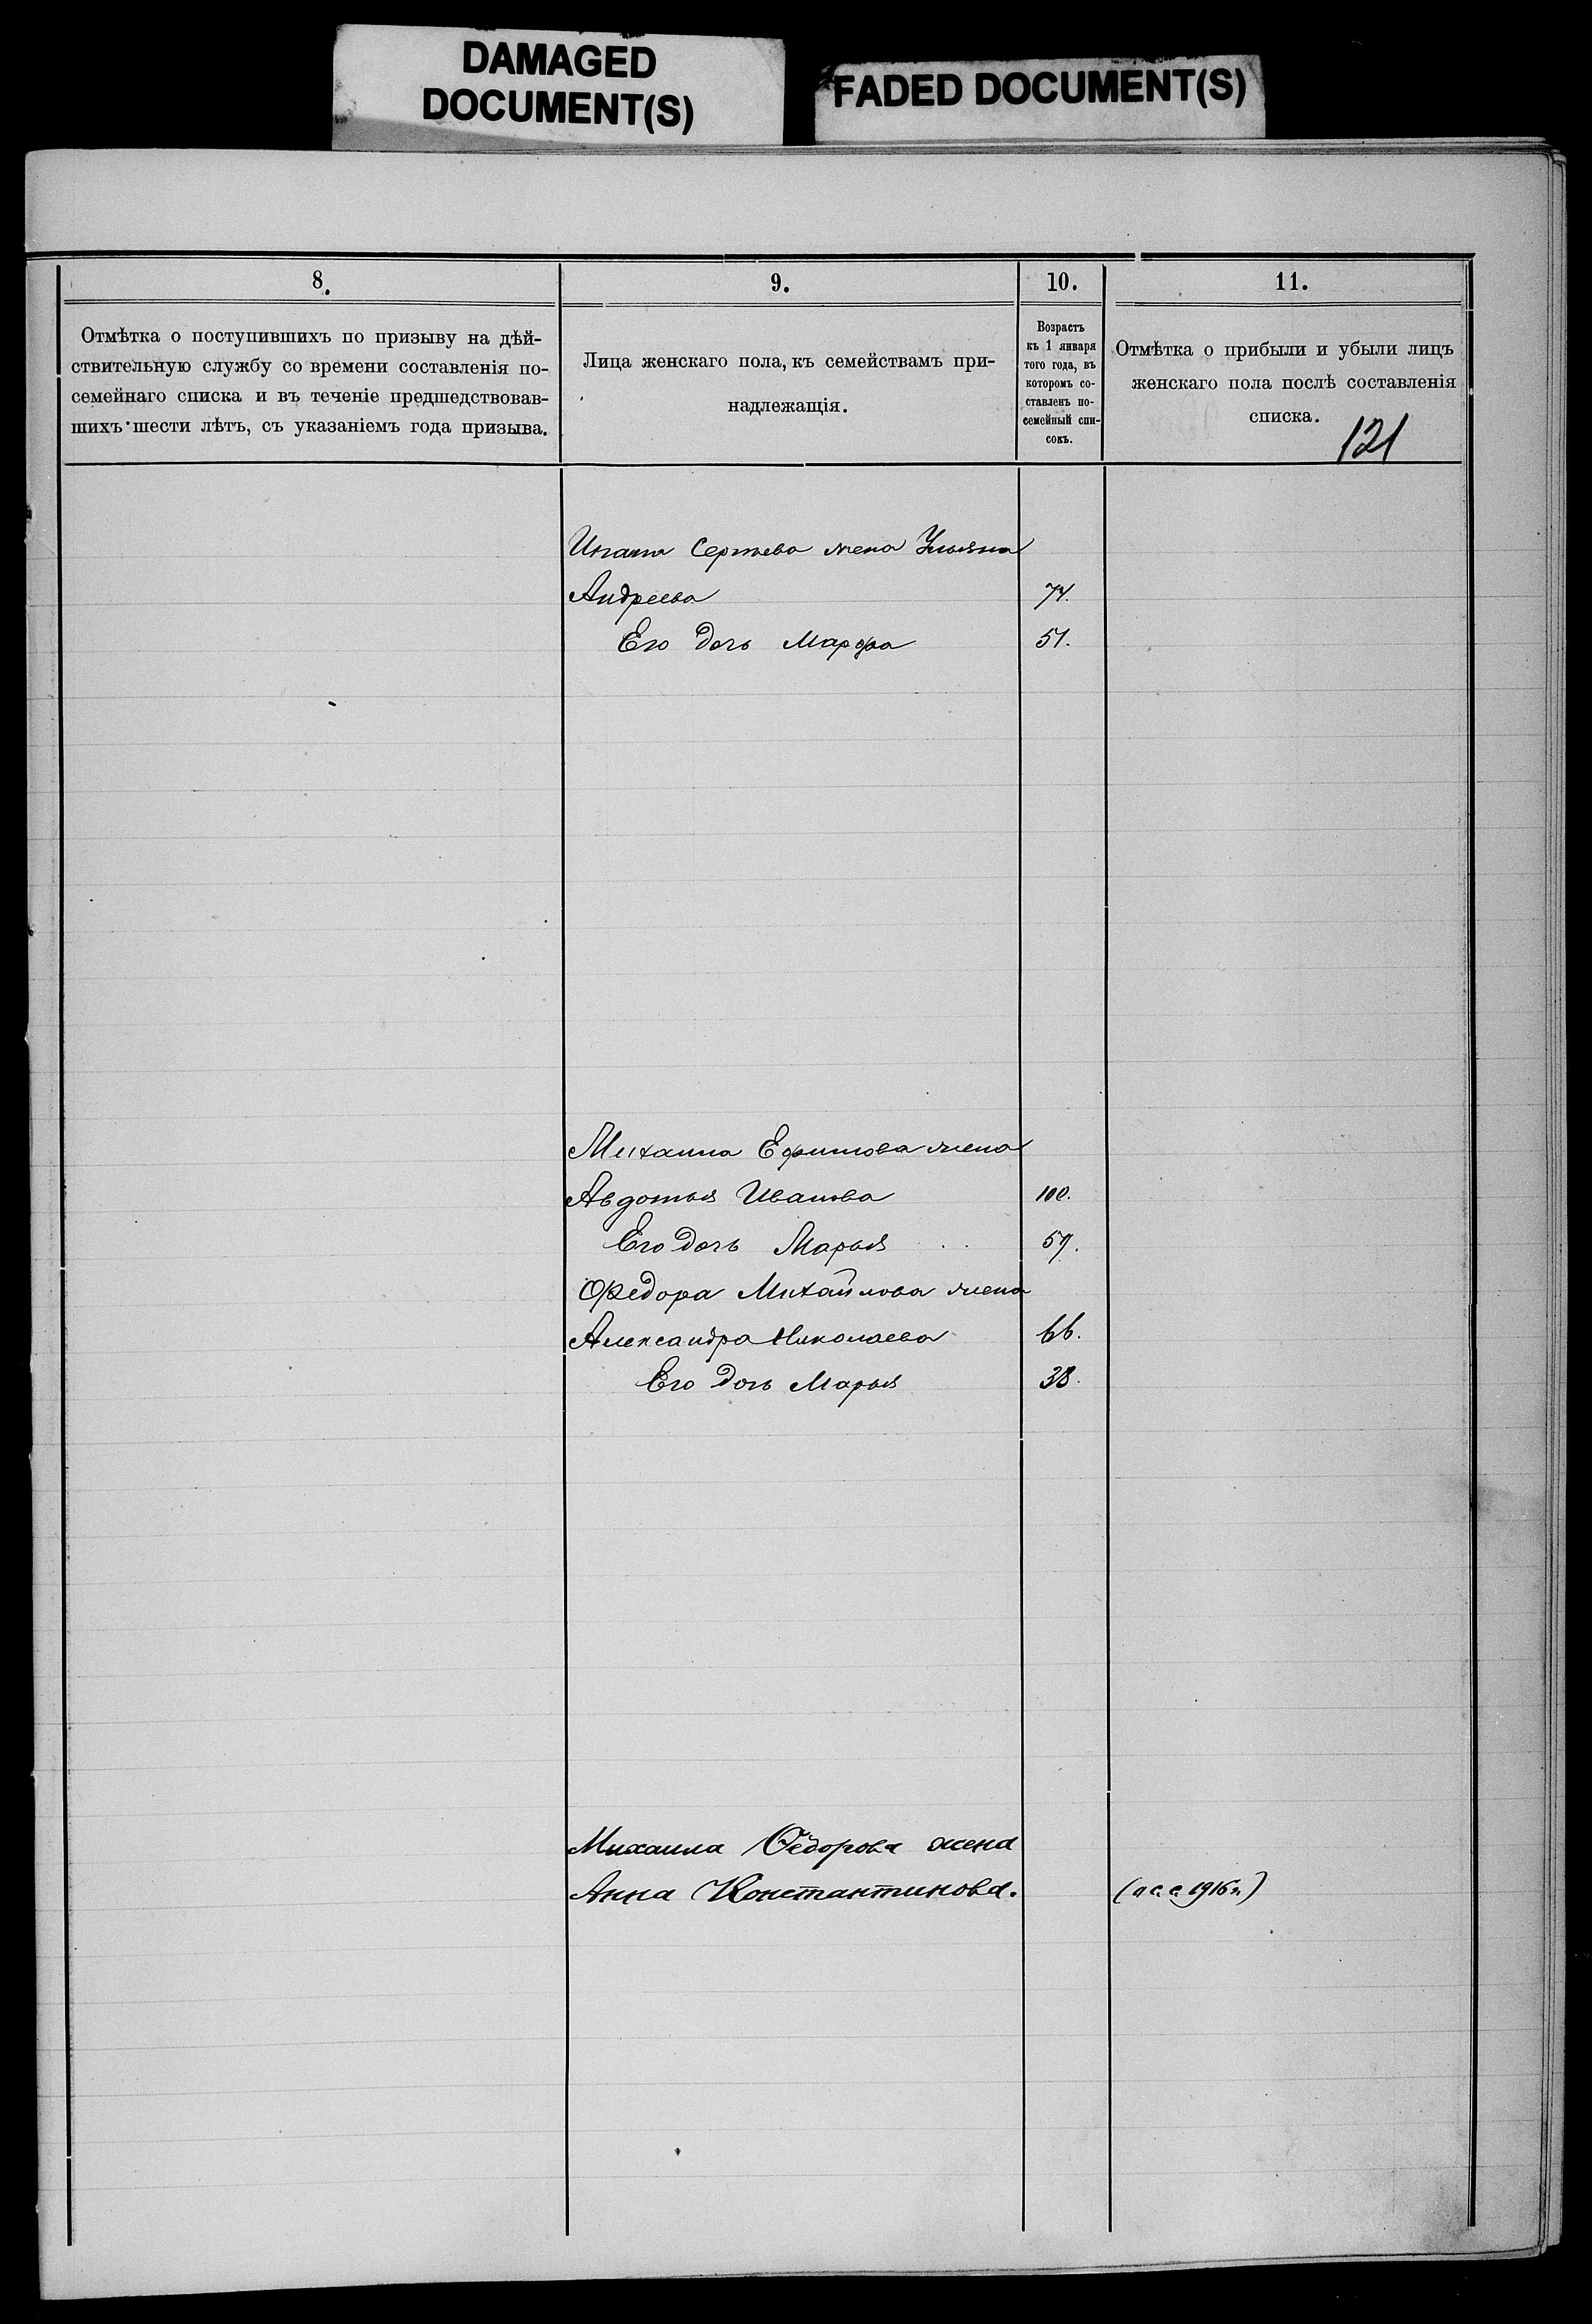 DAMAGED
DOCUMENT(S)
FADED DOCUMENT(S)
8.
9.
10.
11.
Отмѣтка о поступившихъ по призыву на дѣй-
ствительную службу со времени составленія по-
семейнаго списка и въ теченіе предшедствовав-
шихъ шести лѣтъ, съ указаніемъ года призыва.
Лица женскаго пола, къ семействамъ при-
надлежащія.
Возрастъ
къ 1 января
того года, въ
которомъ со-
ставленъ по-
семейный спи-
сокъ.
Отмѣтка о прибыли и убыли лицъ
женскаго пола послѣ составленія
списка.
121
Сергѣева жена Ульяна
Андреева 74.
Его дочь Марфа 51.
Михаила Ефимова жена
Авдотья Иванова 100.
Его дочь Марья 57.
Федора Михайлова жена
Александра Николаева 66.
Его дочь Марья 38.
Михаила Ѳедорова жена
Анна Константинова. 1916г.)